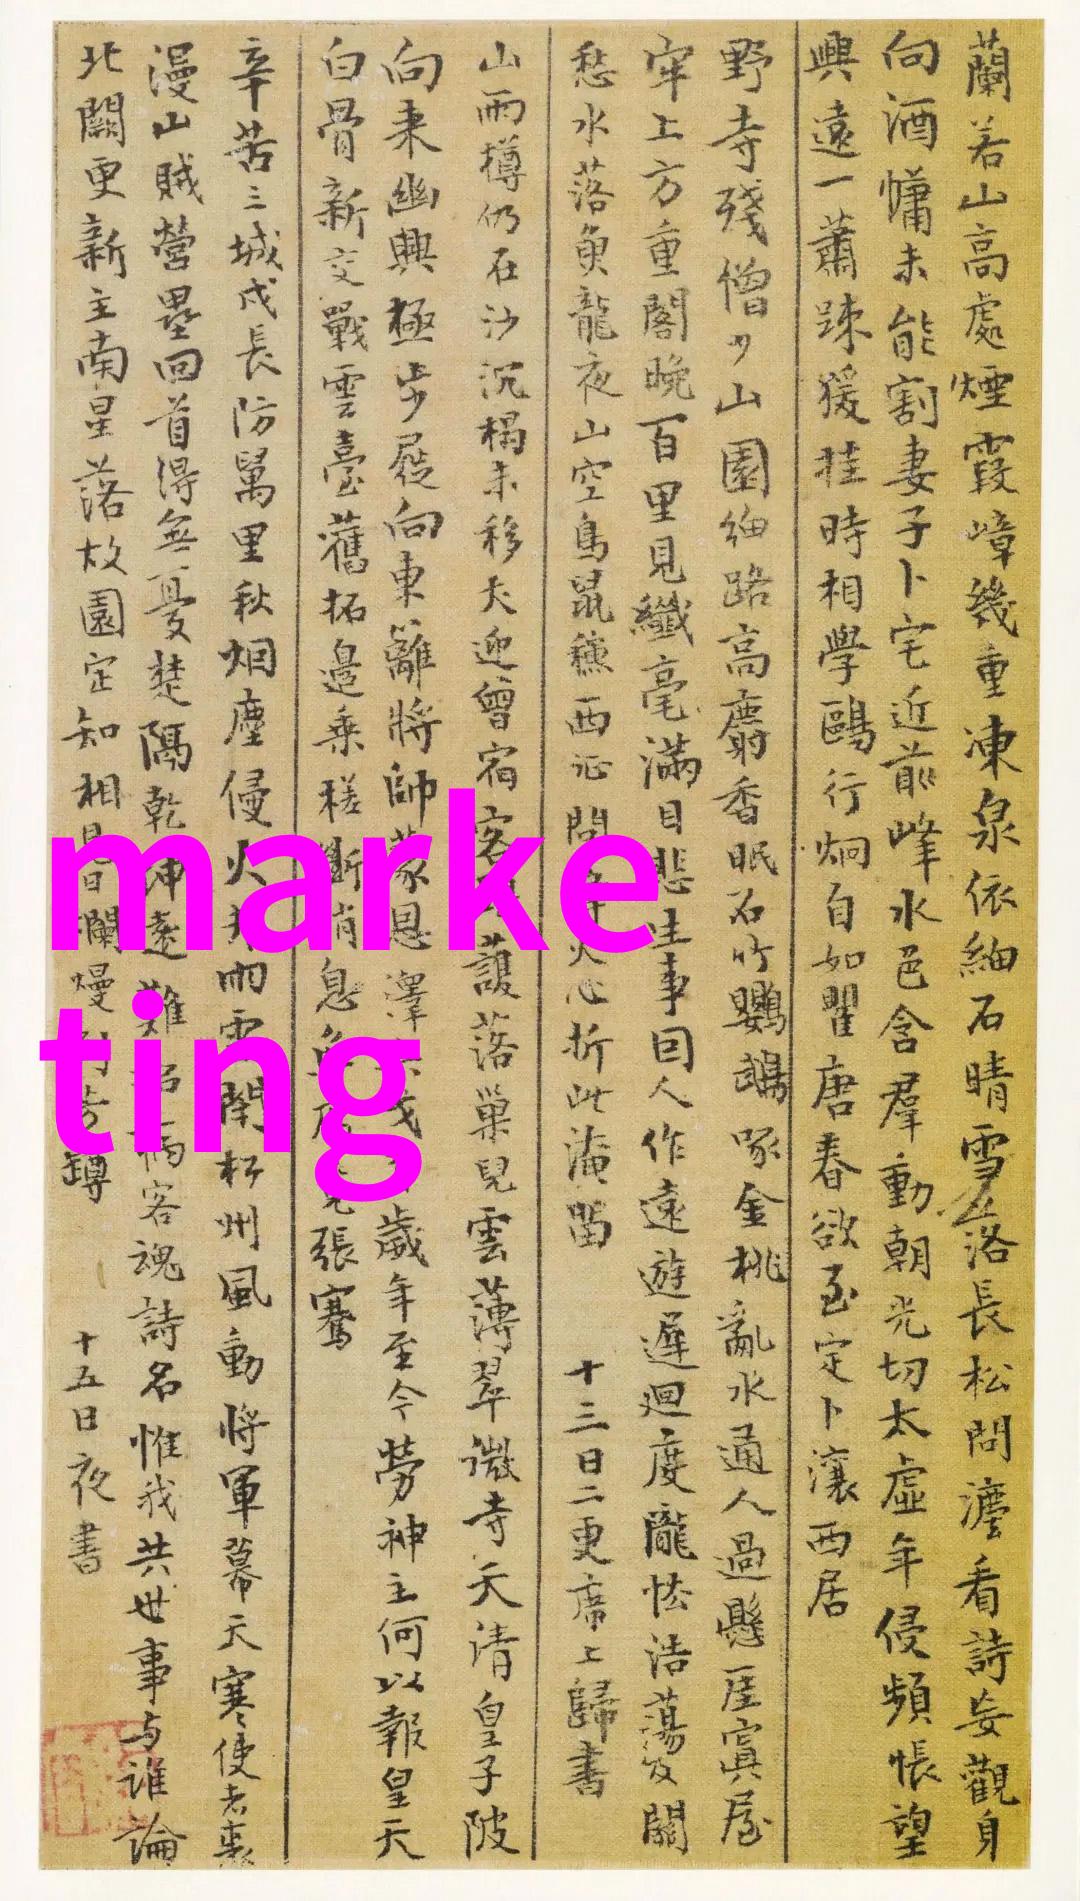 蘭若山高處煙霞嶂幾重凍泉依細石晴雪落長松問灋看詩妄觀身
向酒慵未能割妻子卜宅近前峰水色含羣動朝光切太虛年侵頻悵望
興遠一蕭踈猨挂時相學鷗行炯自如瞿唐春欲至定卜瀼西居
野寺殘僧少山園細路高麝香眠石竹鸚鵡啄金桃亂水通人過懸崖寘屋
牢上方重閣晚百里見纖毫滿目悲生事因人作遠遊遲迴度隴怯浩蕩及關
愁水落魚龍夜山空鳥鼠穐西征問火心折此淹留 十三日二更席上歸書
山雨樽仍在沙沉榻未移犬迎曾宿客護落巢兒雲薄翠微寺天清皇子陂
向來幽興極步屧向東籬將帥蒙恩澤戈歲年至今勞神主何以報皇天
白骨新交戰雲臺舊拓邊乘槎斷消息無張騫
辛苦三城戍長防萬里秋烟塵侵火井雨雪閉松州風動將軍幕天寒使者裘
漫山賊營壘回首得無憂楚隔乾坤遠難招病客魂詩名惟我共世事与誰論
北闕更新主南星落故園定知相見日爛熳倒芳罇 十五日夜書
marke
ting